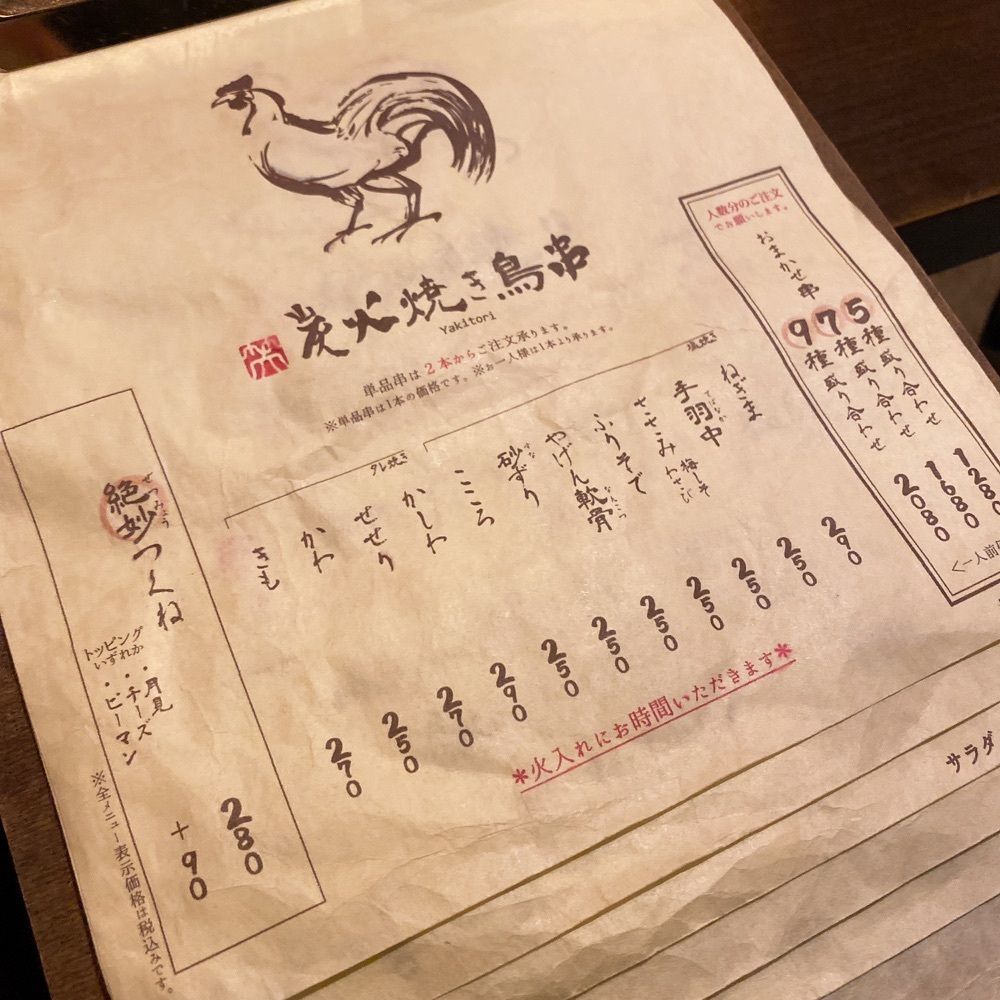 炭火焼き鳥串
Yakitori
単品串は2本からご注文承ります。
※単品串は1本の価格です。※お一人様は1本より承ります。
人数分のご注文
でお願いします。
おまかせ串
5種盛り合わせ 1280
7種盛り合わせ 1680
9種盛り合わせ 2080
<一人前
塩焼き
ねぎま 290
手羽中 てばなか 250
ささみ 梅しそ わさび 250
ふりそで 250
やげん軟骨 なんこつ 250
砂ずり すな 250
こころ 250
タレ焼き
かしわ 290
せせり 270
かわ 250
きも 270
*火入れにお時間いただきます*
絶妙つくね ぜつみょう 280
トッピング
いずれか
・月見
・チーズ
・ピーマン
+90
※全メニュー表示価格は税込みです。
サラダ